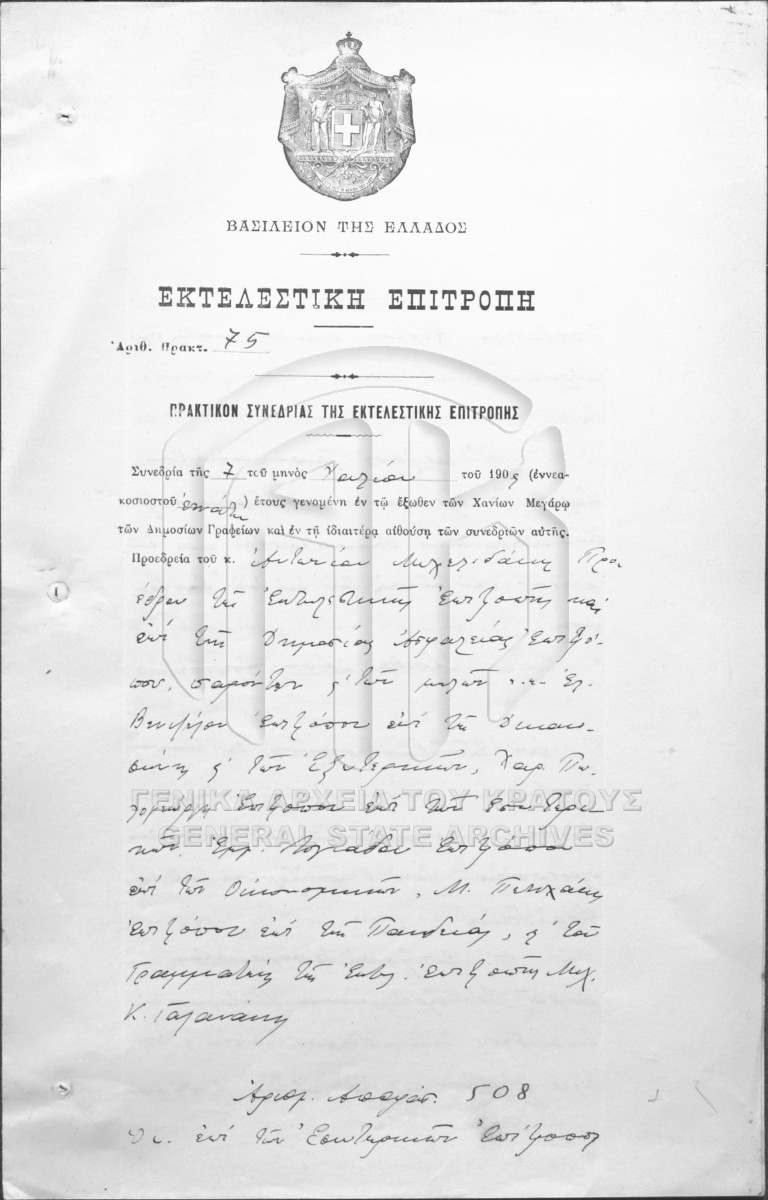 ΒΑΣΙΛΕΙΟΝ ΤΗΣ ΕΛΛΑΔΟΣ
ΕΚΤΕΛΕΣΤΙΚΗ ΕΠΙΤΡΟΠΗ
Ἀριθ. Πρακτ. 75
ΠΡΑΚΤΙΚΟΝ ΣΥΝΕΔΡΙΑΣ ΤΗΣ ΕΚΤΕΛΕΣΤΙΚΗΣ ΕΠΙΤΡΟΠΗΣ
Συνεδρία τῆς 7 τοῦ μηνὸς τοῦ 190 (ἐννεα-
κοσιοστοῦ ἐνάτου) ἔτους γενομένη ἐν τῷ ἔξωθεν τῶν Χανίων Μεγάρῳ
τῶν Δημοσίων Γραφείων καὶ ἐν τῇ ἰδιαιτέρᾳ αἰθούσῃ τῶν συνεδριῶν αὐτῆς.
Προεδρεία τοῦ κ. Ἀντωνίου Μιχελιδάκη Προ
έδρου τῆς Ἐκτελεστικῆς Ἐπιτροπῆς καὶ
ἐπὶ τῆς Δημοσίας Ἀσφαλείας Ἐπιτρό-
που, παρόντων τῶν μελῶν κ.κ. Ἐλ.
Βενιζέλου Ἐπιτρόπου ἐπὶ τῆς Δικαιο-
σύνης τῶν Ἐξωτερικῶν, Χαρ. Πω
λογεώργη Ἐπιτρόπου ἐπὶ τῶν Ἐσωτερι
κῶν, Ἐμμ. Λογιάδου Ἐπιτρόπου
ἐπὶ τῶν Οἰκονομικῶν, Μ. Πετυχάκη
Ἐπιτρόπου ἐπὶ τῆς Παιδείας, τοῦ
Γραμματέως τῆς Ἐκτελ. Ἐπιτροπῆς Μιχ.
Κ.
Ἀριθμ. Ἀποφάσ. 508
Ὁ κ. ἐπὶ τῶν Ἐσωτερικῶν Ἐπίτροπος
ΓΕΝΙΚΑ ΑΡΧΕΙΑ ΤΟΥ ΚΡΑΤΟΥΣ
GENERAL STATE ARCHIVES